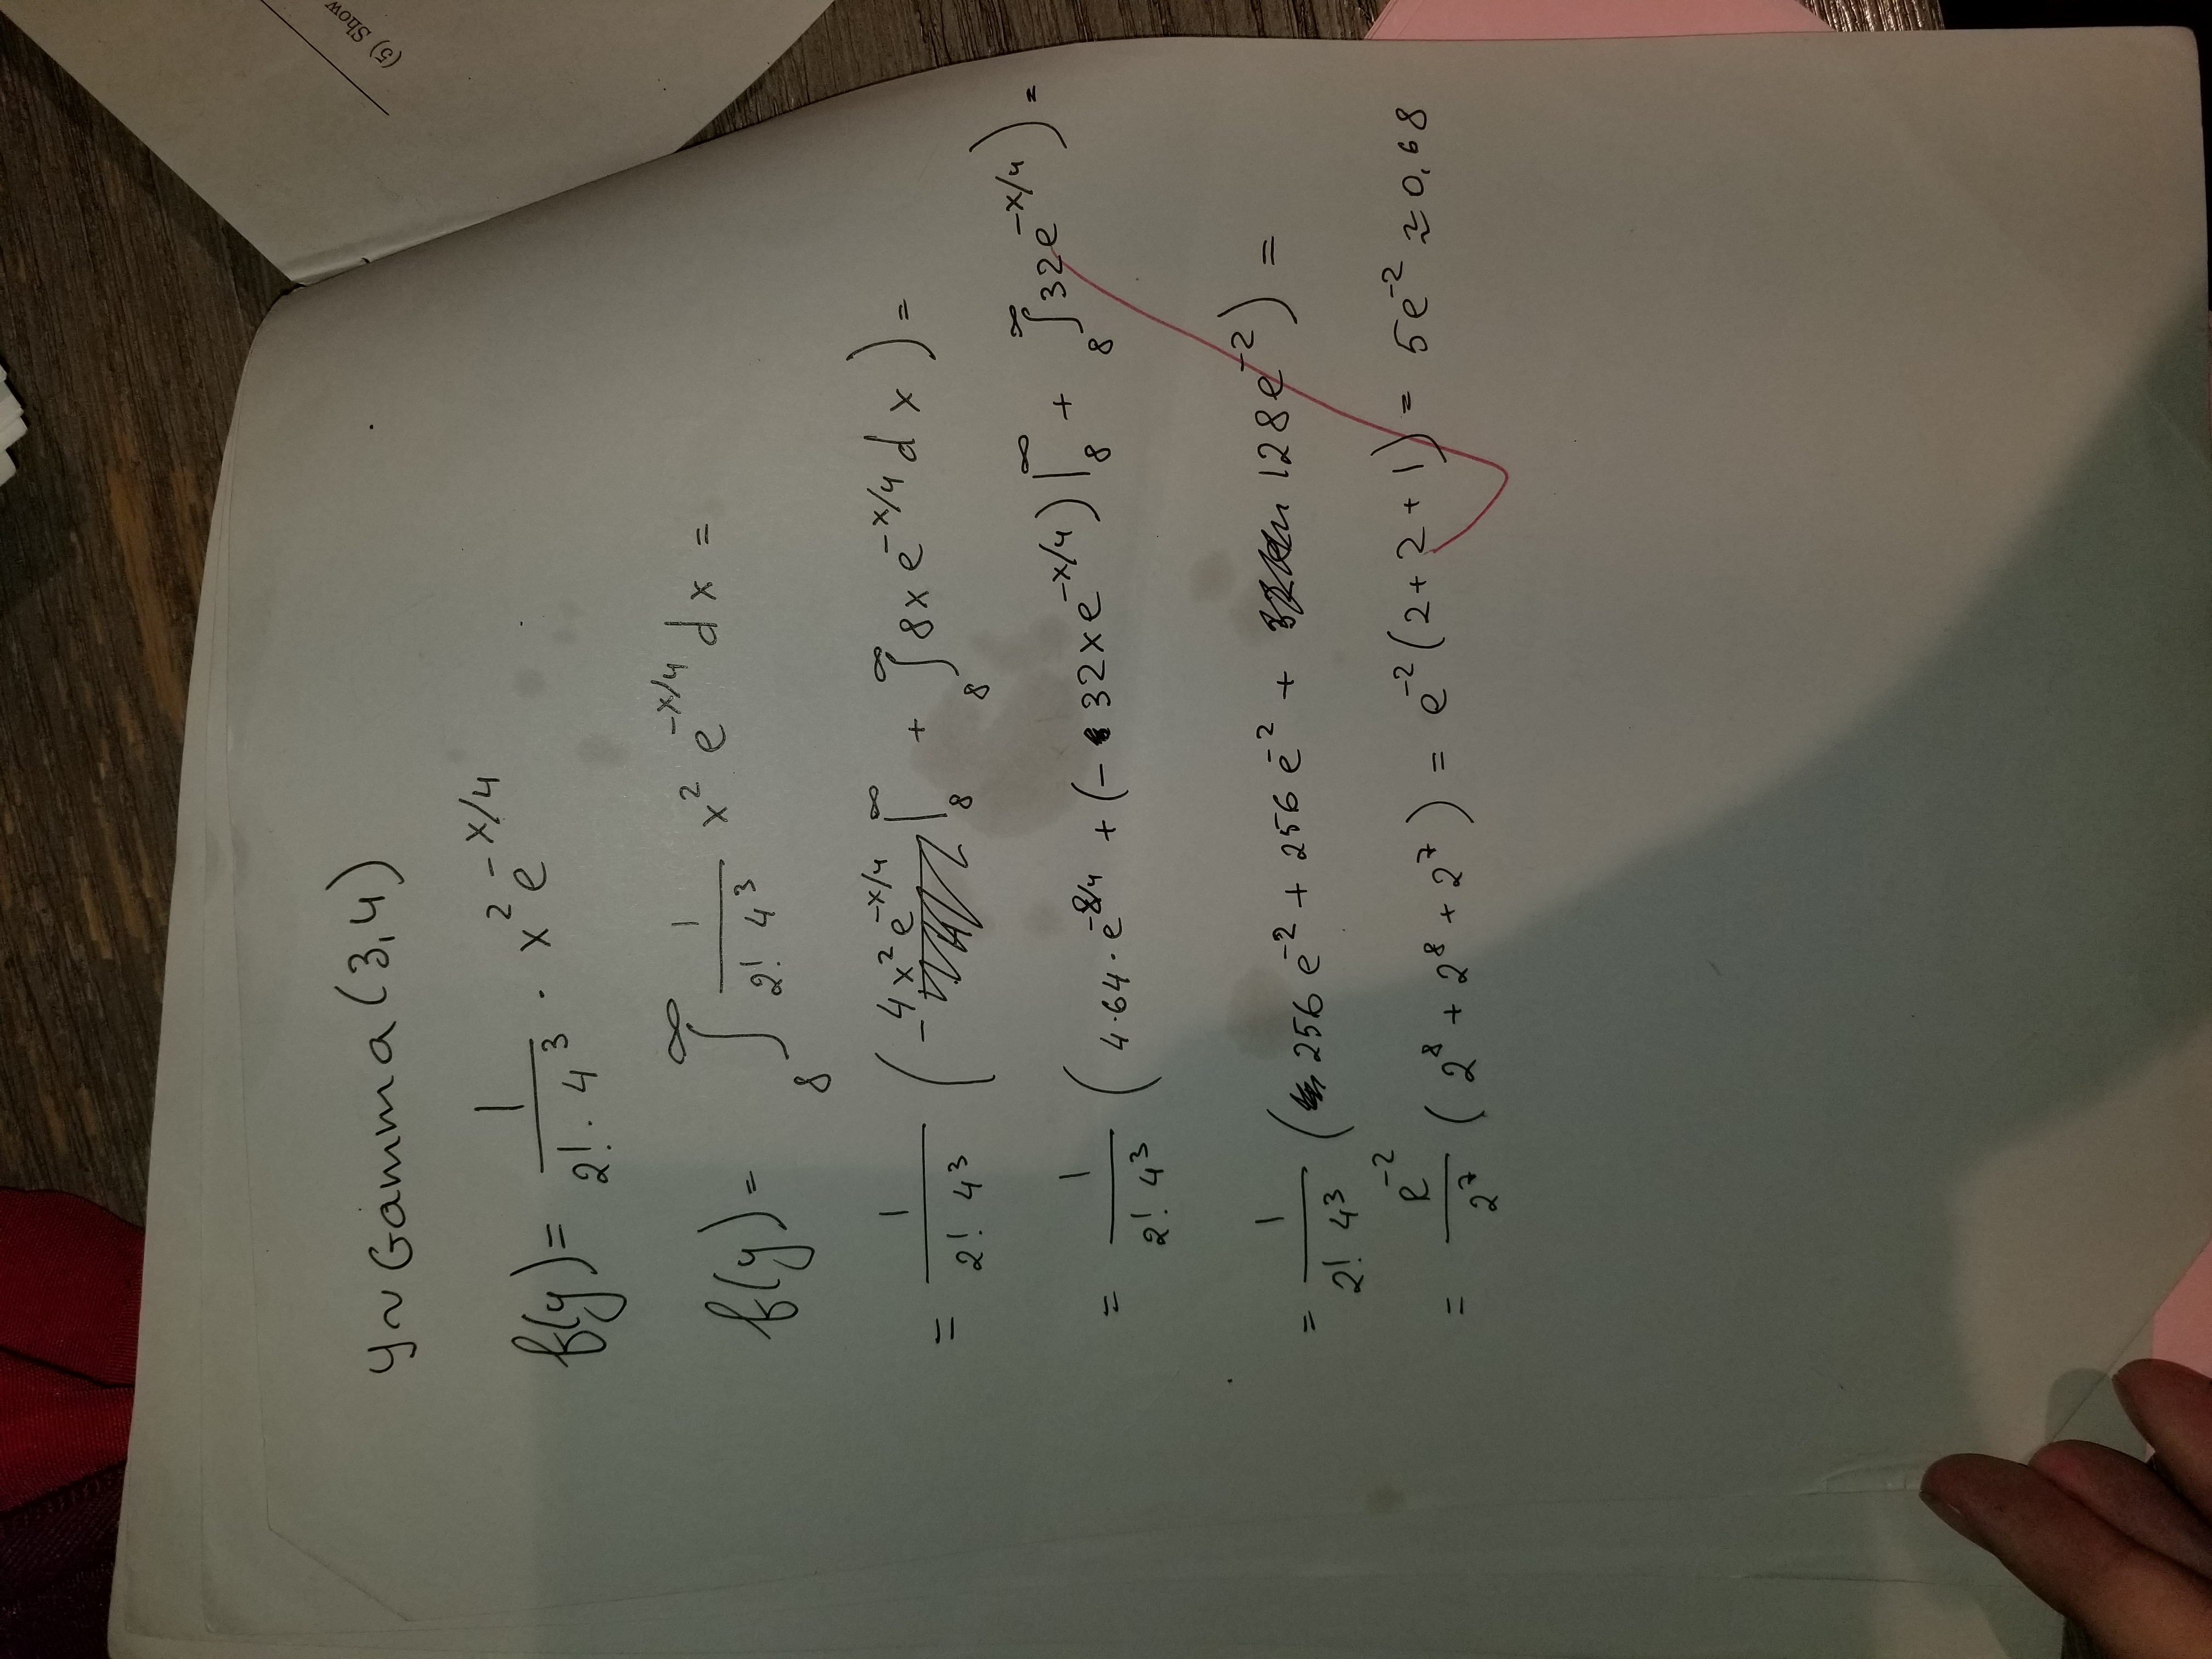 y ~ Gamma (3,4)
f(y) = 1/(2! · 4³) · x² e^(-x/4)
f(y) = ∫₈^∞ 1/(2! 4³) x² e^(-x/4) dx =
= 1/(2! 4³) ( -4x² e^(-x/4) |₈^∞ + ∫₈^∞ 8x e^(-x/4) dx ) =
= 1/(2! 4³) ( 4·64·e^(-8/4) + (-32x e^(-x/4)) |₈^∞ + ∫₈^∞ 32e^(-x/4) ) =
= 1/(2! 4³) ( 256 e^(-2) + 256 e^(-2) + 128e^(-2) ) =
= e^(-2)/2⁷ ( 2⁸ + 2⁸ + 2⁷ ) = e^(-2) (2+2+1) = 5e^(-2) ≈ 0.68
(5) Show